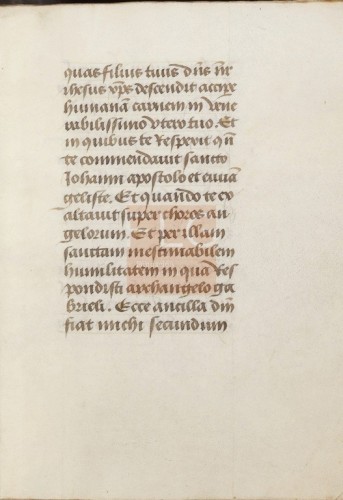 quas filius tuus dn̄s nr̄
ihesus xp̄s descendit accip̄e
humanā carnem in vene
rabilissimo vtero tuo. Et
in quibus te respexit qn̄
te commendauit sancto
Johanni apostolo et euuā
geliste. Et quando te ex
altauit super choros an
gelorum. Et per illam
sanctam inestimabilem
humilitatem in qua res
pondisti archangelo ga
brieli. Ecce ancilla dn̄i
fiat michi secundum